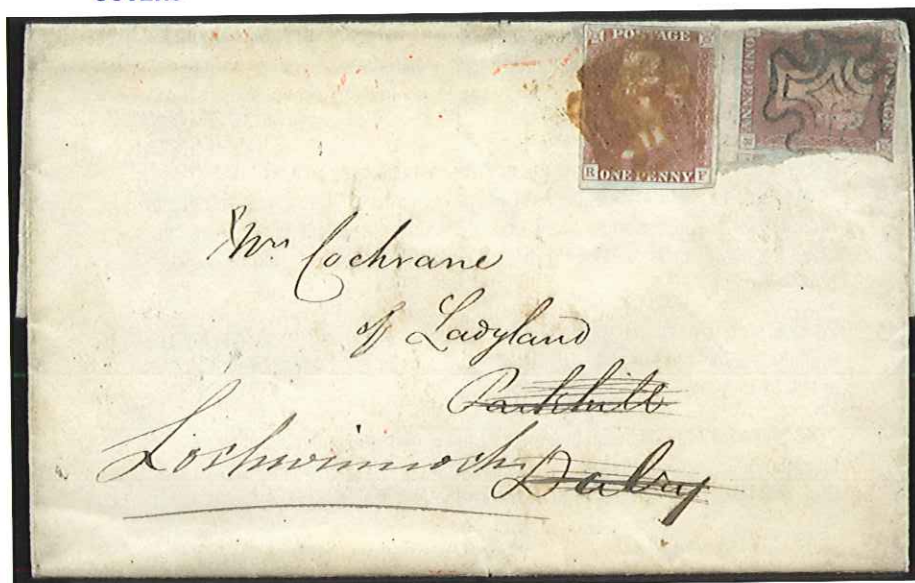 POSTAGE
R ONE PENNY F
ONE PENNY
Mrs Cochrane
of Ladyland
Parkhill
Lochwinnoch Dalry